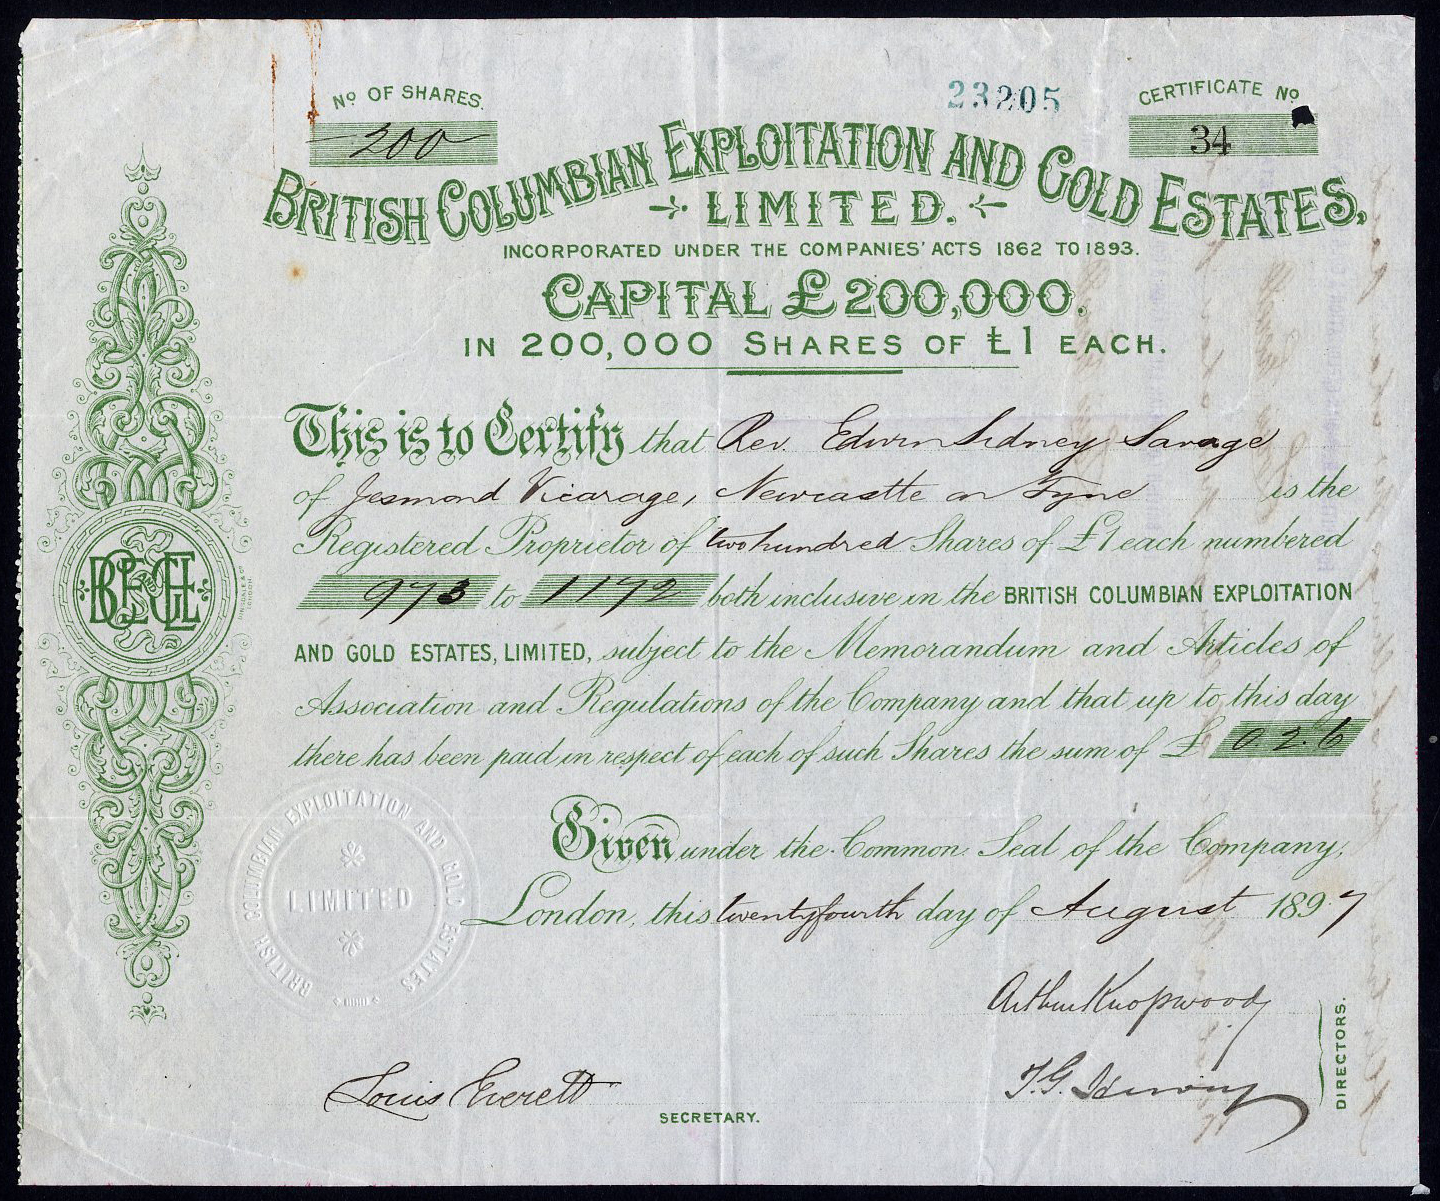 Nº OF SHARES.
200
23205
CERTIFICATE Nº
34
BRITISH COLUMBIAN EXPLOITATION AND GOLD ESTATES,
LIMITED.
INCORPORATED UNDER THE COMPANIES' ACTS 1862 TO 1893.
CAPITAL £200,000.
IN 200,000 SHARES OF £1 EACH.
This is to Certify that Rev. Edwin Sidney Savage
of Jesmond Vicarage, Newcastle on Tyne is the
Registered Proprietor of two hundred Shares of £1 each numbered
973 to 1172 both inclusive in the BRITISH COLUMBIAN EXPLOITATION
AND GOLD ESTATES, LIMITED, subject to the Memorandum and Articles of
Association and Regulations of the Company and that up to this day
there has been paid in respect of each of such Shares the sum of £ 0 2. 6
Given under the Common Seal of the Company,
London, this twentyfourth day of August 1897
BRITISH COLUMBIAN EXPLOITATION AND GOLD ESTATES
LIMITED
Arthur Knopwood
T. G.
DIRECTORS.
Louis Everett
SECRETARY.
BCE AND GE